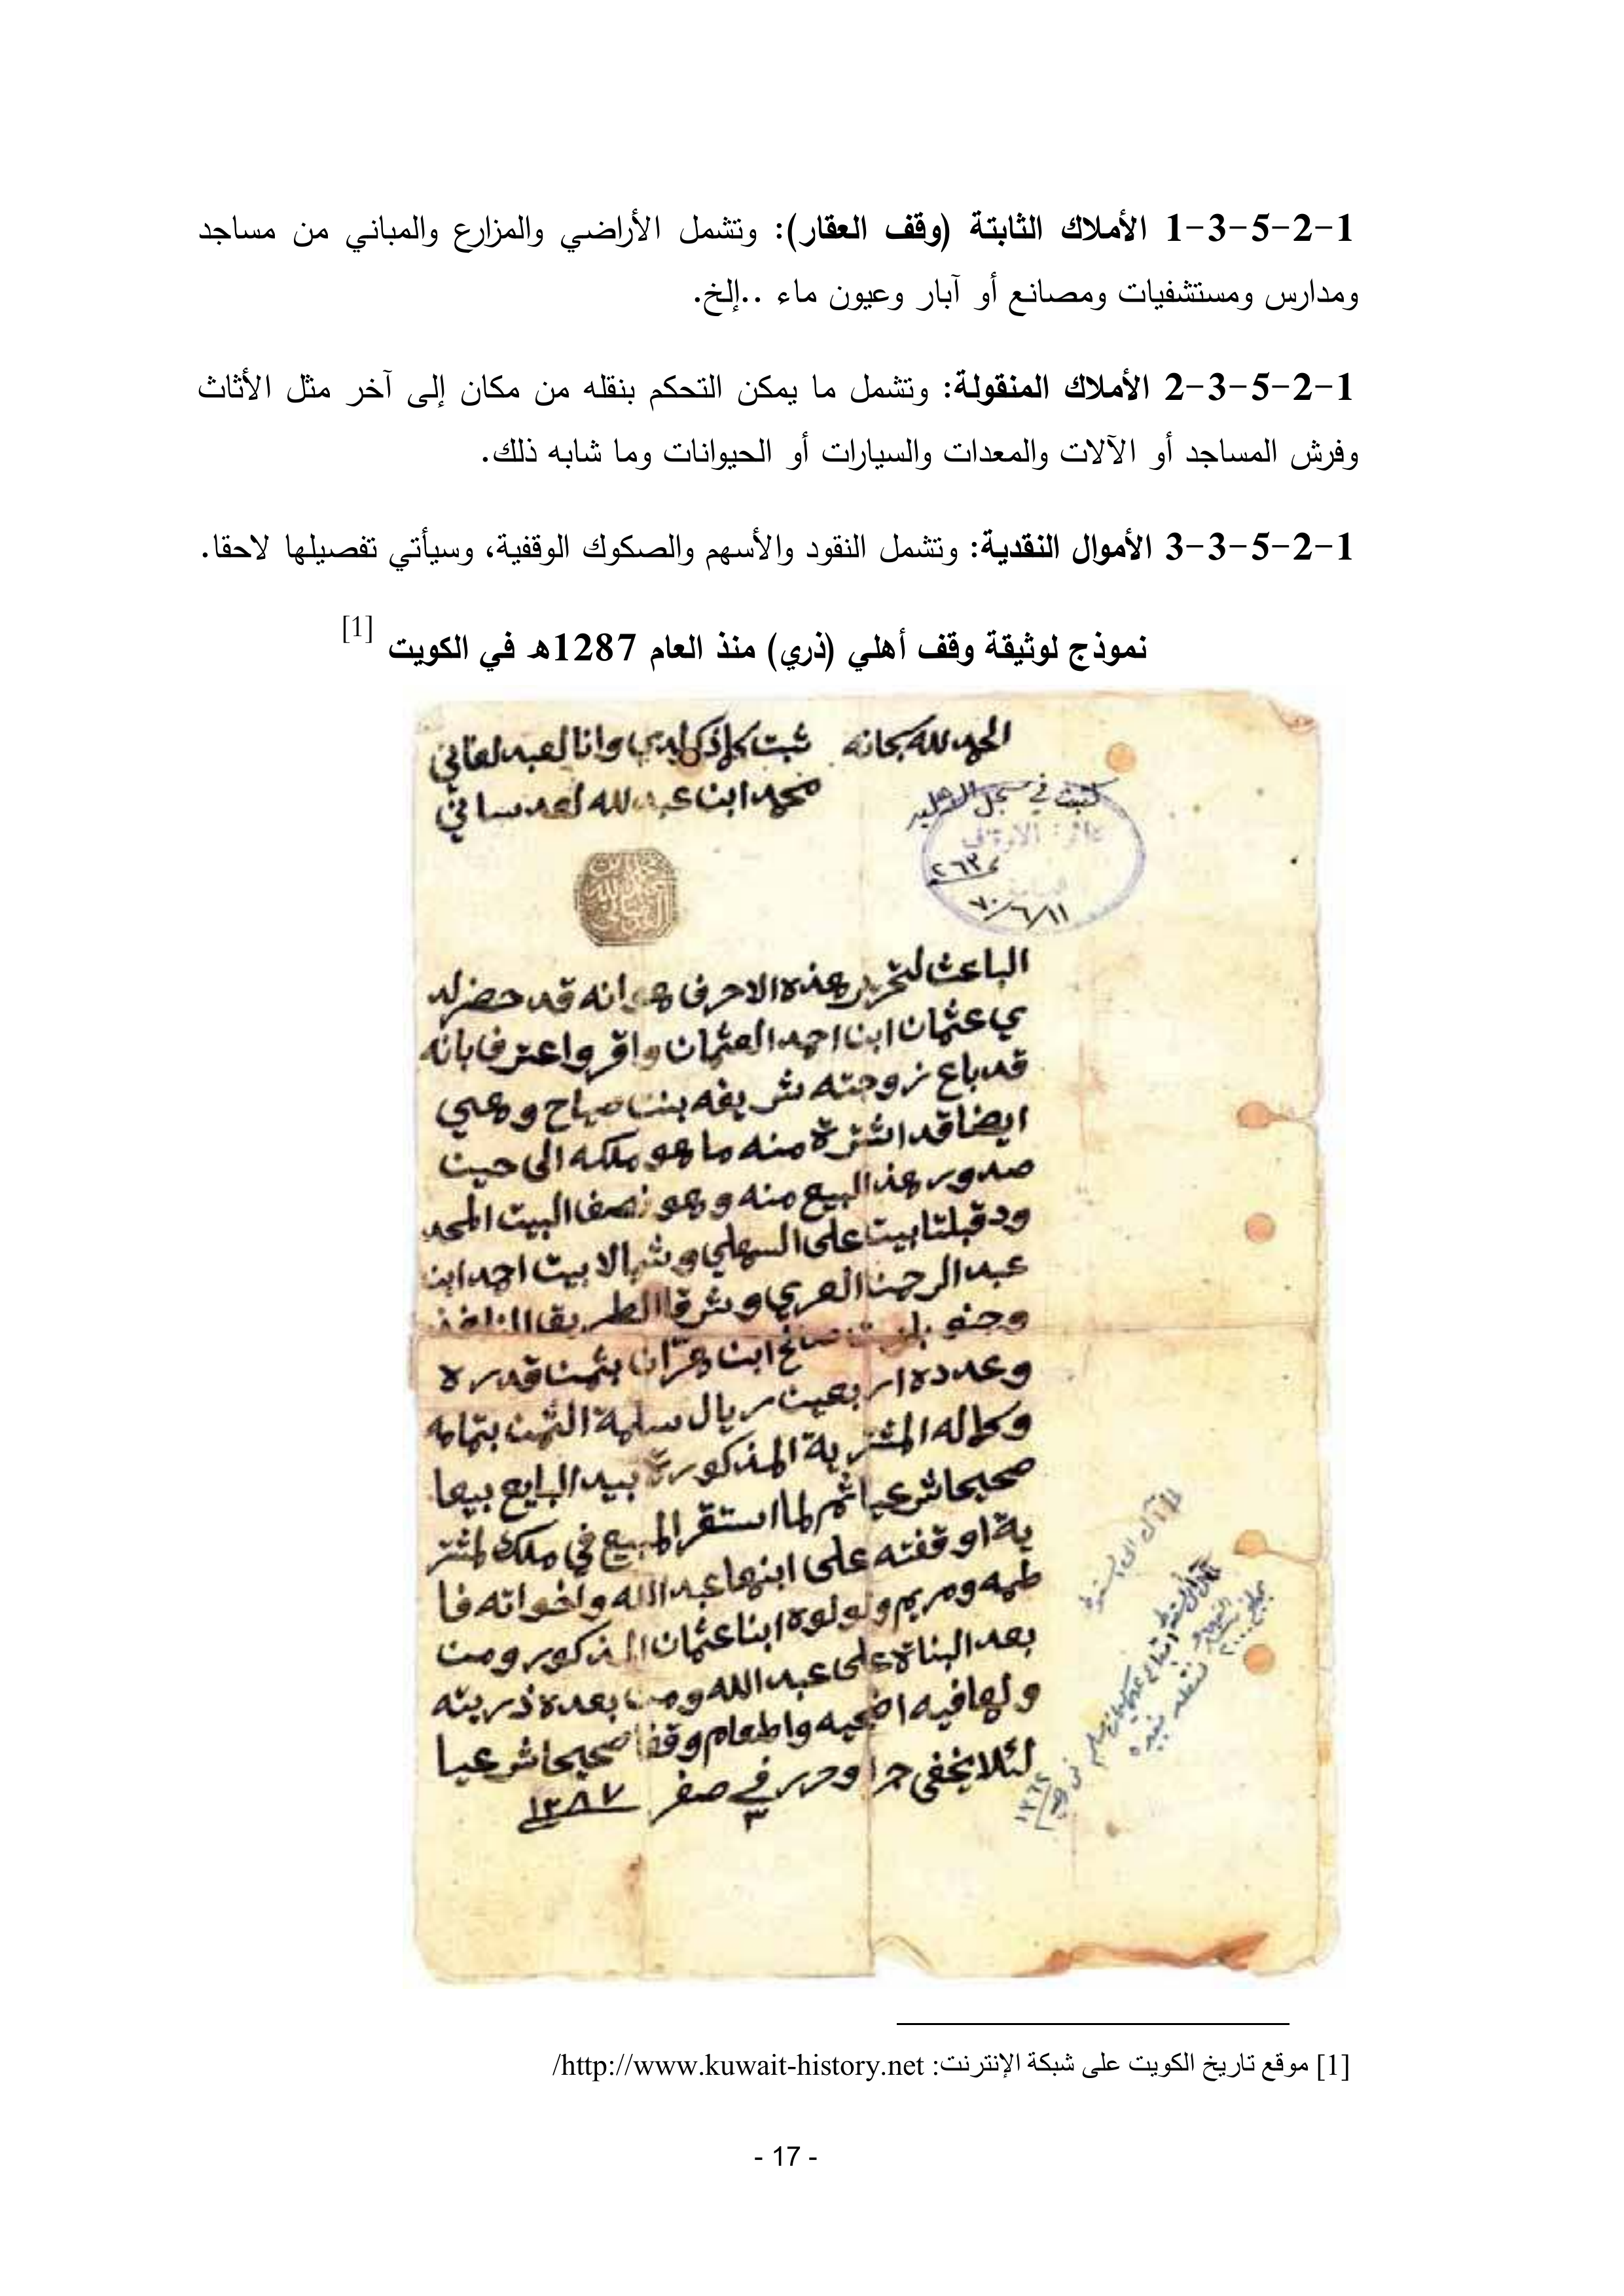 1-2-5-3-1 الأملاك الثابتة (وقف العقار): وتشمل الأراضي والمزارع والمباني من مساجد
ومدارس ومستشفيات ومصانع أو آبار وعيون ماء ..إلخ.
1-2-5-3-2 الأملاك المنقولة: وتشمل ما يمكن التحكم بنقله من مكان إلى آخر مثل الأثاث
وفرش المساجد أو الآلات والمعدات والسيارات أو الحيوانات وما شابه ذلك.
1-2-5-3-3 الأموال النقدية: وتشمل النقود والأسهم والصكوك الوقفية، وسيأتي تفصيلها لاحقا.
نموذج لوثيقة وقف أهلي (ذري) منذ العام 1287هـ في الكويت [1]
الحمد لله سبحانه ثبت كلما ذكر لدي وانا العبد الفاني
محمد ابن عبدلله العدساني
كتبت في سجل
دائرة الاوقاف
٢٦٣
٧٠/٦/١١
الباعث لتحرير هذه الاحرف هو انه قد حضر لد
ي عثمان ابن احمد العثمان واقر واعترف بانه
قد باع زوجته شريفه بنت صباح وهي
ايضا قد اشترة منه ما هو ملكه الى حين
صدور هذا البيع منه وهو نصف البيت المحد
ود قبلتا بيت على السهلي وشمالا بيت احمد ابن
عبد الرحمن العربي وشرقا الطريق النافذ
وجنوبا بيت صالح ابن هزان بثمن قدره
وعدده اربعين ريال سلمة الثمن بتمامه
وكماله المشترية المذكورة بيد البايع بيعا
صحيحا شرعيا ثم لما استقر المبيع في ملك المشتر
ية اوقفته على ابنها عبد الله واخواته فا
طمه ومريم ولولوه ابنا عثمان المذكور ومن
بعد البناة على عبد الله ومن بعده ذريته
ولها فيه اضحيه واطعام وقفا صحيحا شرعيا
لئلا يخفى جرا وحرر في ٣ صفر ١٢٨٧
[1] موقع تاريخ الكويت على شبكة الإنترنت: http://www.kuwait-history.net/
- 17 -